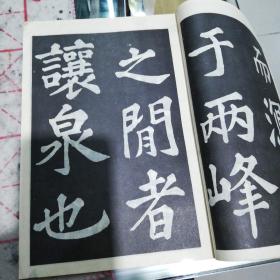 而
于兩峰
之閒者
讓泉也